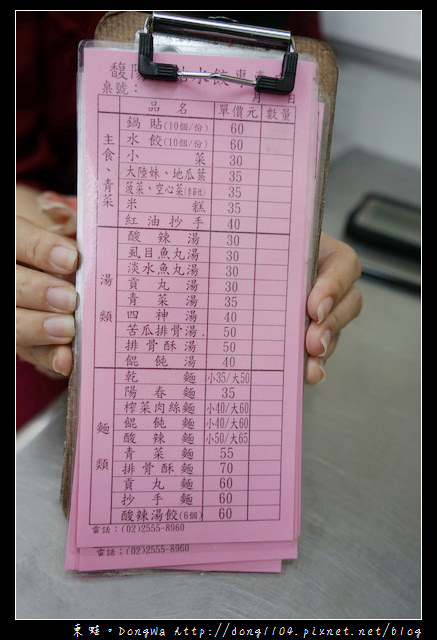 馥陽 水餃專
桌號： 月 日
品名 單價元 數量
主食、青菜
鍋貼(10個/份) 60
水餃(10個/份) 60
小菜 30
大陸妹、地瓜葉 35
菠菜、空心菜 35
米糕 35
紅油抄手 40
湯類
酸辣湯 30
虱目魚丸湯 30
淡水魚丸湯 30
貢丸湯 30
青菜湯 35
四神湯 40
苦瓜排骨湯 50
排骨酥湯 50
餛飩湯 40
麵類
乾麵 小35/大50
陽春麵 35
榨菜肉絲麵 小40/大60
餛飩麵 小40/大60
酸辣麵 小50/大65
青菜麵 55
排骨酥麵 70
貢丸麵 60
抄手麵 60
酸辣湯餃(6個) 60
電話：(02)2555-8960
電話：(02)2555-8960
東蛙。DongWa http://dong1104.pixnet.net/blog